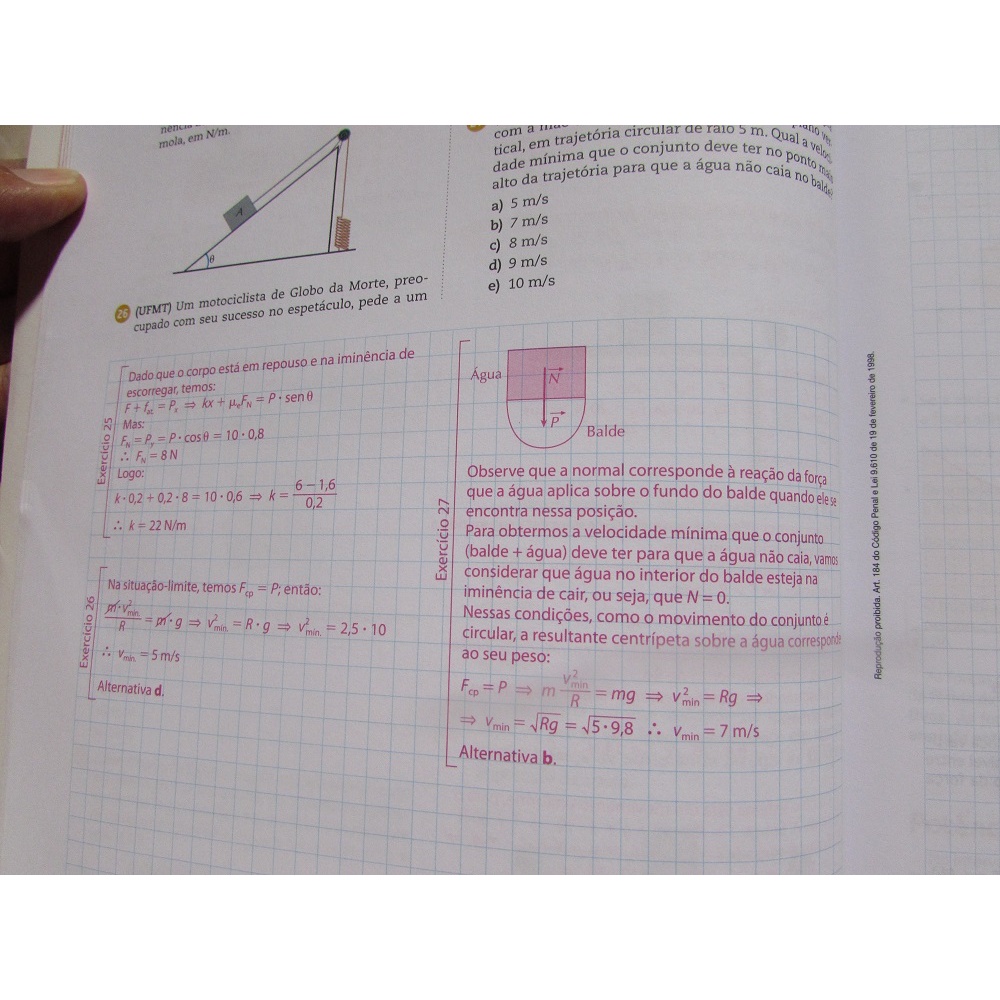 mola, em N/m.
A
θ
26 (UFMT) Um motociclista de Globo da Morte, preo-
cupado com seu sucesso no espetáculo, pede a um
com a
tical, em trajetória circular de raio 5 m. Qual a veloci-
dade mínima que o conjunto deve ter no ponto mais
alto da trajetória para que a água não caia no balde?
a) 5 m/s
b) 7 m/s
c) 8 m/s
d) 9 m/s
e) 10 m/s
Exercício 25
Dado que o corpo está em repouso e na iminência de
escorregar, temos:
F + f_at = P_x ⇒ kx + μ_e F_N = P · sen θ
Mas:
F_N = P_y = P · cos θ = 10 · 0,8
∴ F_N = 8 N
Logo:
k · 0,2 + 0,2 · 8 = 10 · 0,6 ⇒ k = (6 – 1,6)/0,2
∴ k = 22 N/m
Exercício 26
Na situação-limite, temos F_cp = P; então:
m · v²_mín./R = m · g ⇒ v²_mín. = R · g ⇒ v²_mín. = 2,5 · 10
∴ v_mín. = 5 m/s
Alternativa d.
Exercício 27
Água
N
P
Balde
Observe que a normal corresponde à reação da força
que a água aplica sobre o fundo do balde quando ele se
encontra nessa posição.
Para obtermos a velocidade mínima que o conjunto
(balde + água) deve ter para que a água não caia, vamos
considerar que água no interior do balde esteja na
iminência de cair, ou seja, que N = 0.
Nessas condições, como o movimento do conjunto é
circular, a resultante centrípeta sobre a água corresponde
ao seu peso:
F_cp = P ⇒ m v²_mín/R = mg ⇒ v²_mín = Rg ⇒
⇒ v_mín = √Rg = √5 · 9,8 ∴ v_mín = 7 m/s
Alternativa b.
Reprodução proibida. Art. 184 do Código Penal e Lei 9.610 de 19 de fevereiro de 1998.